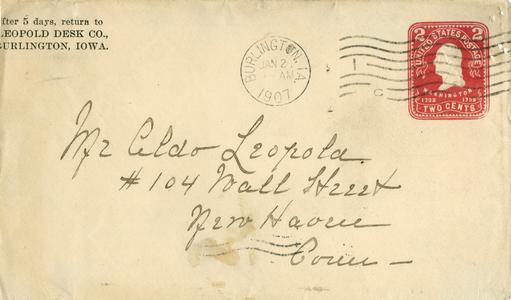 After 5 days, return to
LEOPOLD DESK CO.,
BURLINGTON, IOWA.
BURLINGTON, IA.
JAN 2
AM
1907
1
C
2 2
UNITED STATES POSTAGE
WASHINGTON
1732 1799
TWO CENTS
Mr Aldo Leopold
#104 Wall Street
New Haven
Conn—